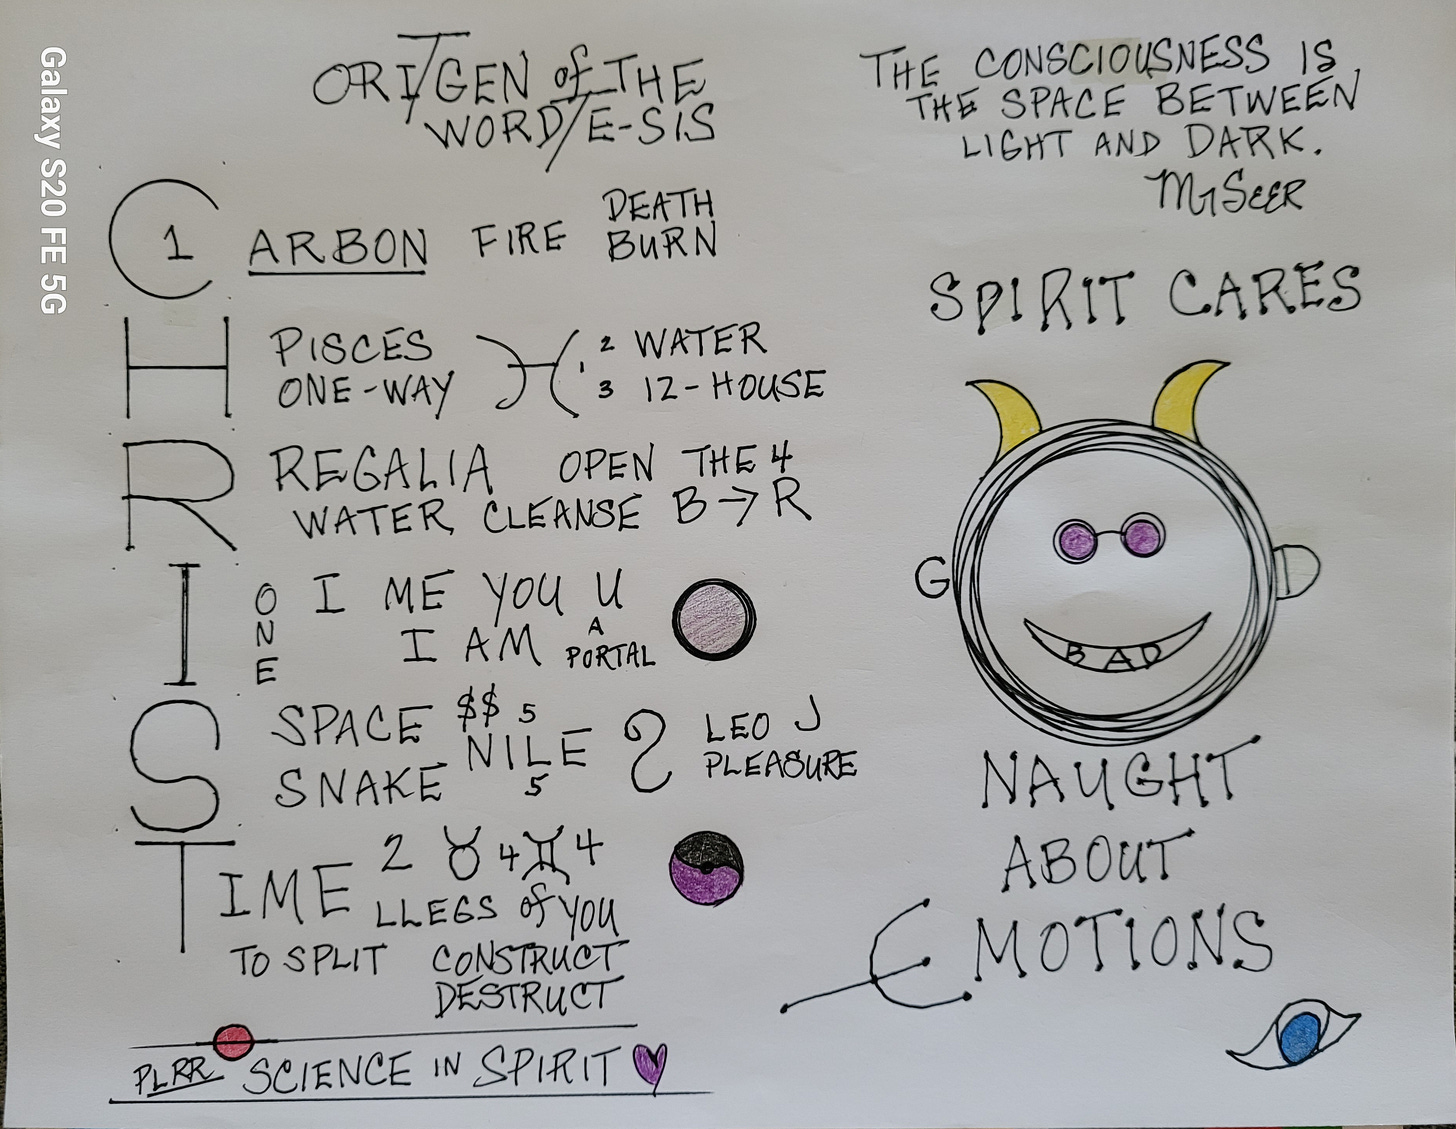 Galaxy S20 FE 5G
ORI/TGEN of THE
WORD/E-SIS
C 1 ARBON FIRE DEATH
BURN
H PISCES ♓ 2 WATER
ONE-WAY 3 12-HOUSE
R REGALIA OPEN THE 4
WATER, CLEANSE B → R
I ONE I ME YOU U
I AM A PORTAL
S SPACE $$ 5 LEO J
SNAKE NILE 5 PLEASURE
TIME 2 ♉ 4 ♊ 4
LLEGS of YOU
TO SPLIT CONSTRUCT
DESTRUCT
PLRR SCIENCE IN SPIRIT
THE CONSCIOUSNESS IS
THE SPACE BETWEEN
LIGHT AND DARK.
SPIRIT CARES
G
BAD
NAUGHT
ABOUT
EMOTIONS